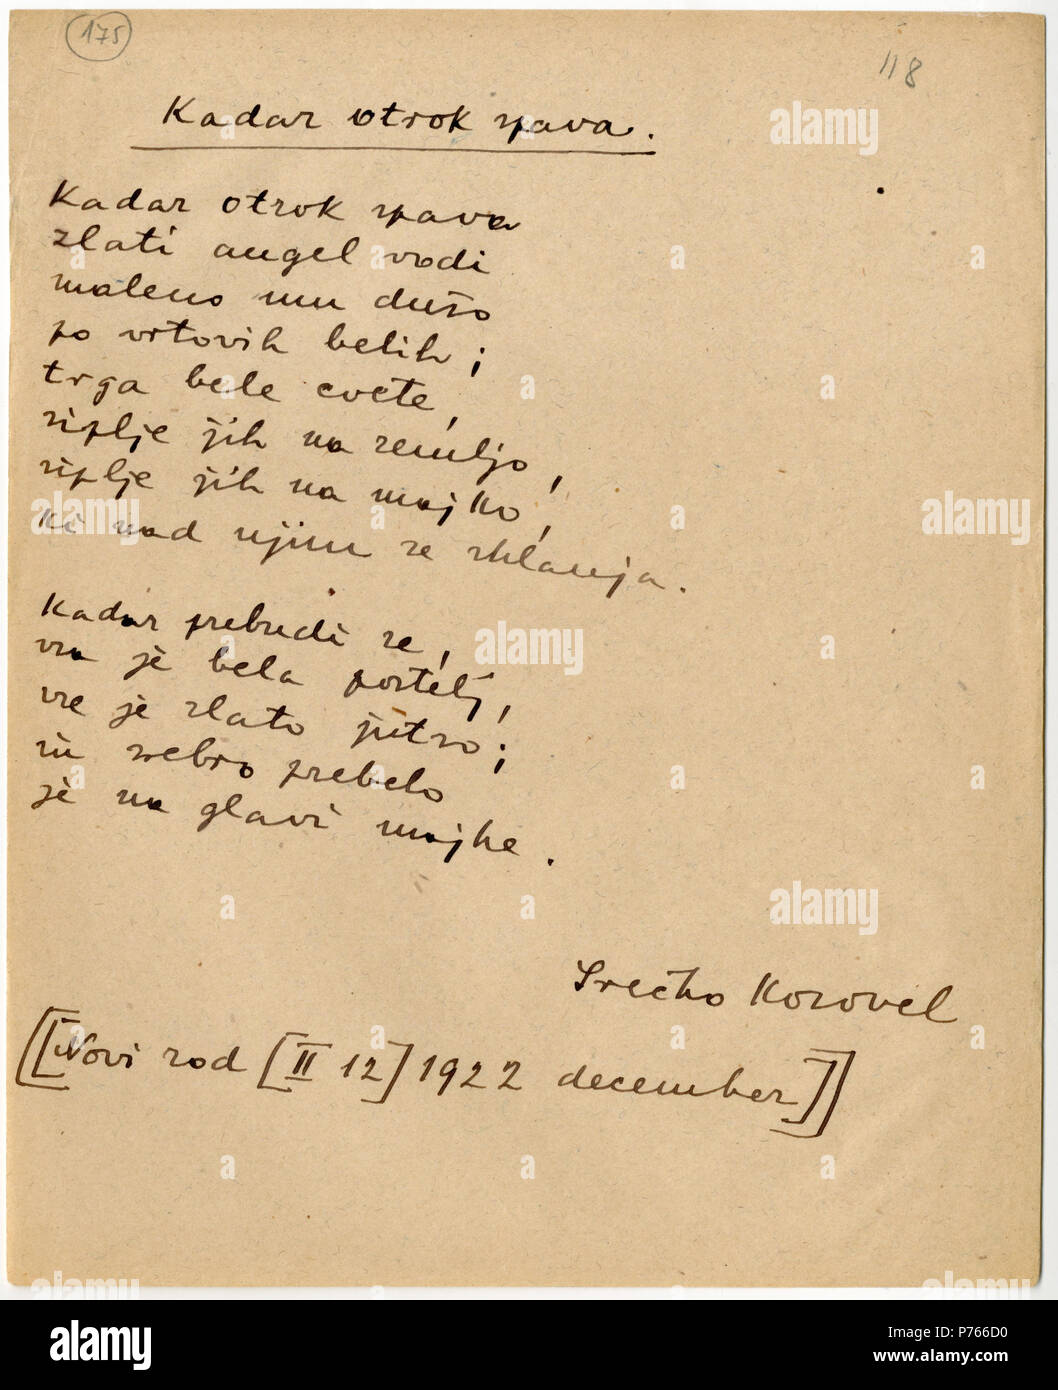 175
118
Kadar otrok spava.
Kadar otrok spava
zlati angel vodi
maleno mu dušo
po vrtovih belih;
trga bele cvete,
siplje jih na zemljo,
siplje jih na majko,
ki nad njim se sklanja.
Kadar prebudi se,
vsa je bela postelj,
vse je zlato jutro;
in srebro prebelo
je na glavi majke.
Srečko Kosovel
[[Novi rod [II 12] 1922 december]]
alamy
Image ID: P766D0
www.alamy.com